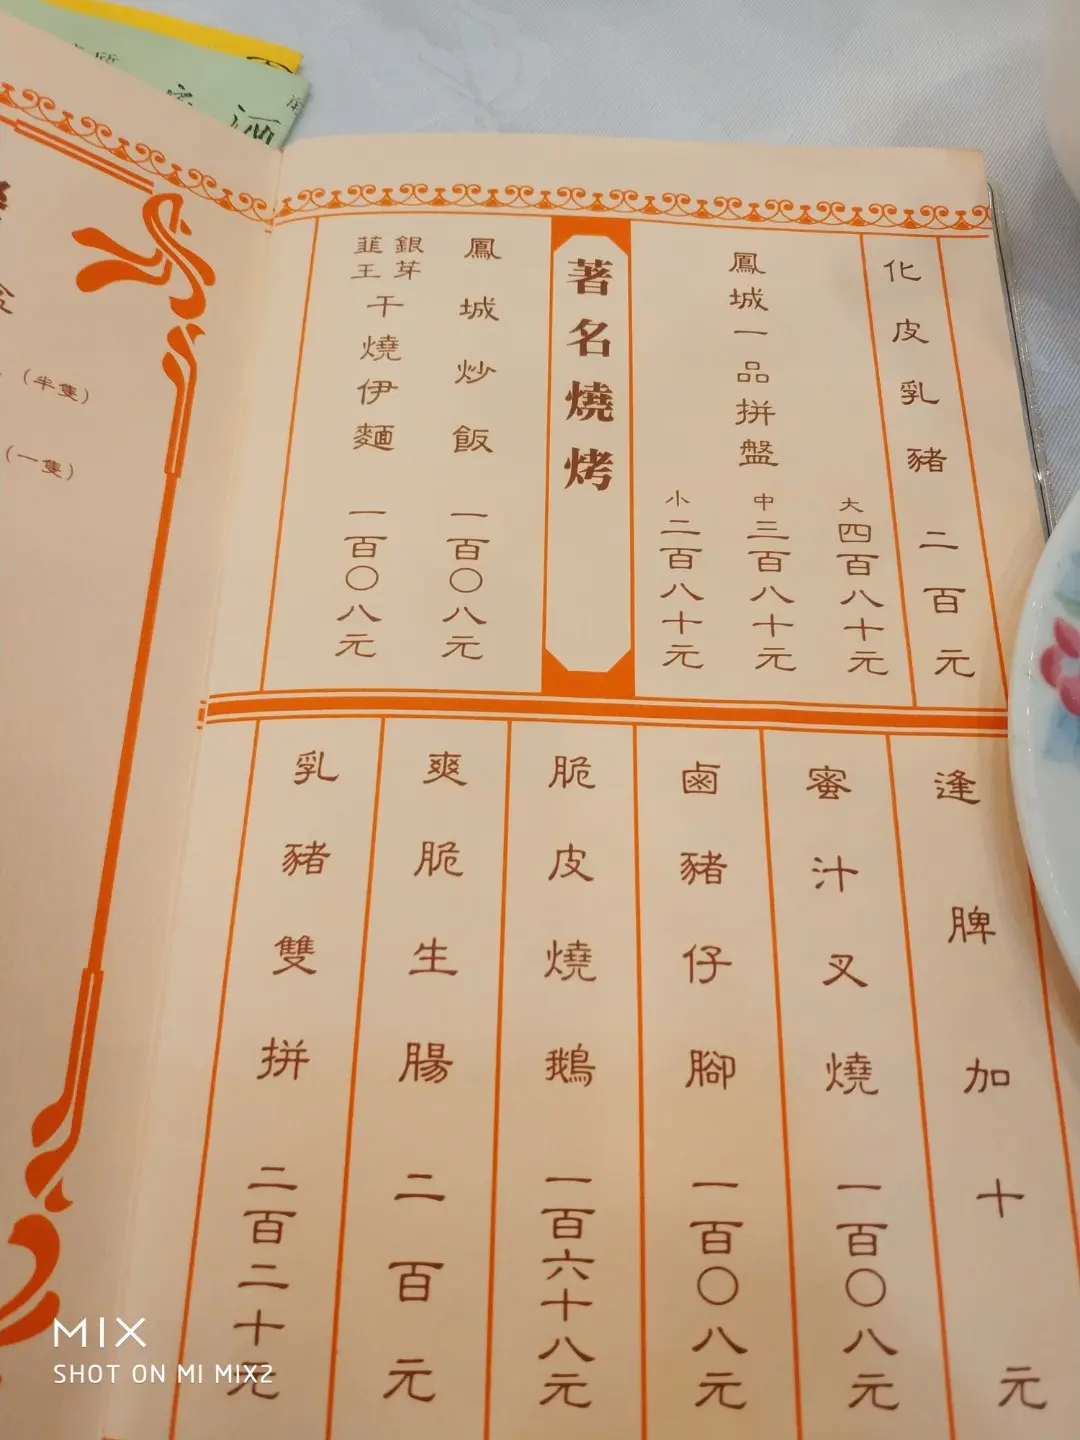 化皮乳豬 二百元
鳳城一品拼盤
大 四百八十元
中 三百八十元
小 二百八十元
著名燒烤
鳳城炒飯 一百〇八元
銀芽韮王干燒伊麵 一百〇八元
逢脾加十元
蜜汁叉燒 一百〇八元
鹵豬仔腳 一百〇八元
脆皮燒鵝 一百六十八元
爽脆生腸 二百元
乳豬雙拼 二百二十元
（半隻）
（一隻）
MIX
SHOT ON MI MIX2